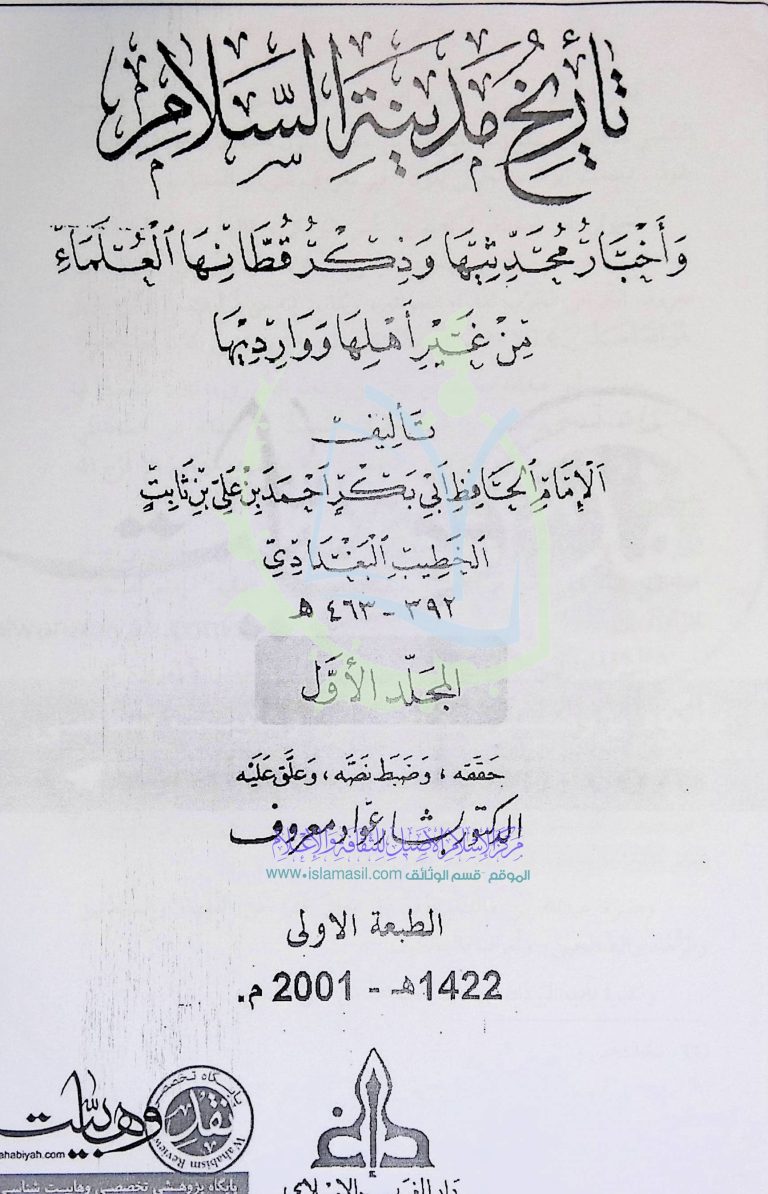 تَأْرِيخُ مَدِينَةِ السَّلَامِ
وَأَخْبَارُ مُحَدِّثِيهَا وَذِكْرُ قُطَّانِهَا ٱلْعُلَمَاءِ
مِنْ غَيْرِ أَهْلِهَا وَوَارِدِيهَا
تأليف
الإِمَامِ ٱلْحَافِظِ أَبِي بَكْرٍ أَحْمَدَ بْنِ عَلِيِّ بْنِ ثَابِتٍ
الخَطِيبِ ٱلْبَغْدَادِيِّ
٣٩٢ - ٤٦٣ هـ
المجلّد الأوّل
حَقَّقَه، وَضَبَطَ نَصَّه، وَعَلَّقَ عَلَيْه
الدكتور بشار عوّاد معروف
مركز الإسلام الأصيل للثقافة والإعلام
الموقع - قسم الوثائق www.islamasil.com
الطبعة الاولى
1422هـ - 2001 م.
پایگاه تخصصی
نقد
وهابیت
Wahabism Review
ahabiyah.com
پایگاه پژوهشی تخصصی وهابیت شناسی
دار الغرب الإسلامي